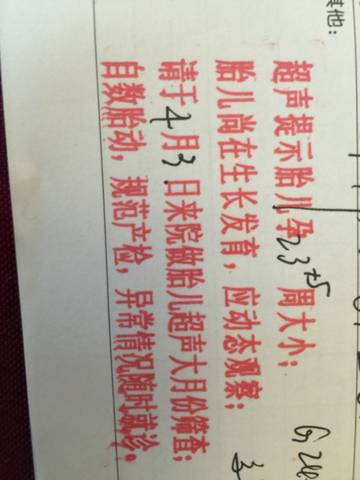 其他:
超声提示胎儿孕23+5周大小;
胎儿尚在生长发育,应动态观察;
请于4月3日来院做胎儿超声大月份筛查;
自数胎动,规范产检,异常情况随时就诊。